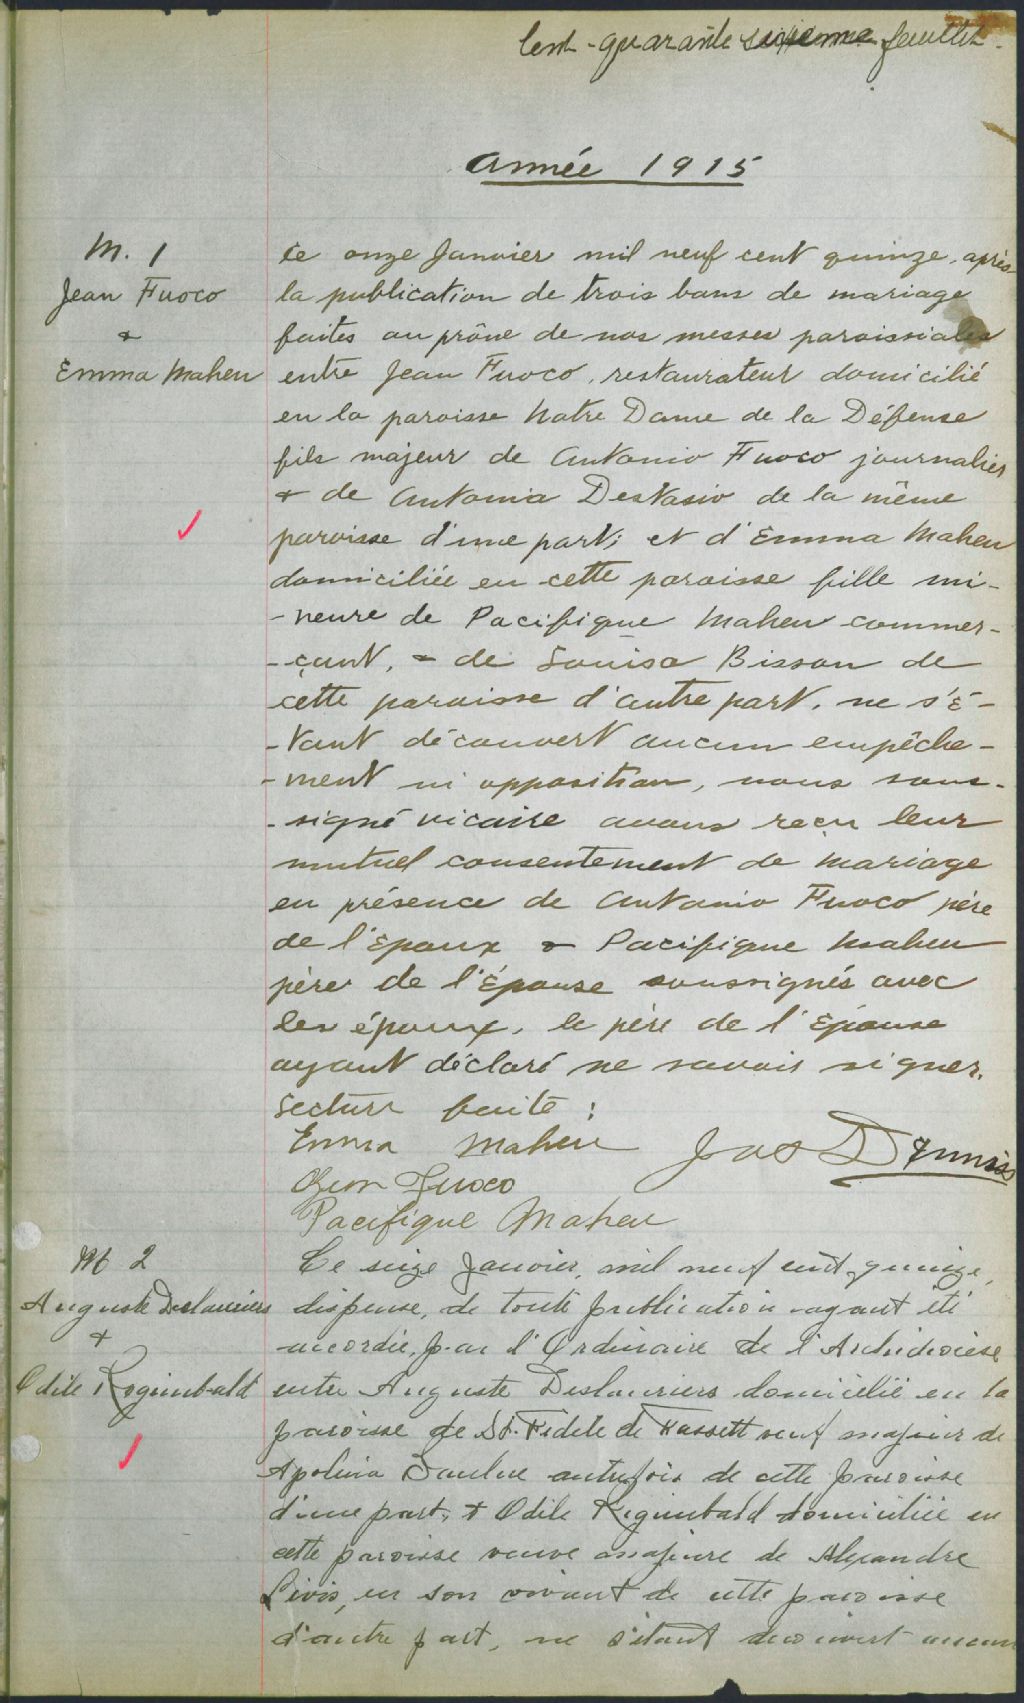 Cent-quarante sixieme feuillet.
Année 1915
M. 1
Jean Fuoco
&
Emma Maheu
Le onze Janvier mil neuf cent quinze, après
la publication de trois bans de mariage
faites au prône de nos messes paroissiales
entre Jean Fuoco, restaurateur domicilié
en la paroisse Notre Dame de la Défense
fils majeur de Antonio Fuoco journalier
& de Antonia DesTasio de la même
paroisse d'une part; et d'Emma Maheu
domiciliée en cette paroisse fille mi-
-neure de Pacifique Maheu commer-
-çant, & de Louisa Bisson de
cette paroisse d'autre part, ne s'é-
-tant découvert aucun empêche-
-ment ni opposition, nous sous-
-signé vicaire avons reçu leur
mutuel consentement de mariage
en présence de Antonio Fuoco père
de l'Epoux & Pacifique Maheu
père de l'Épouse soussignés avec
les époux, le père de l'Epouse
ayant déclaré ne savoir signer.
Lecture faite:
Emma Maheu
Jean Fuoco
Pacifique Maheu
M 2
Auguste Deslauriers
&
Odile Regimbald
Ce seize Janvier, mil neuf cent, quinze,
dispense, de toute publication ayant été
accordée, par l'Ordinaire de l'Archidiocèse
entre Auguste Deslauriers domicilié en la
paroisse de St. Fidele de Fassett veuf majeur de
Apolina autrefois de cette paroisse
d'une part, & Odile Regimbald domiciliée en
cette paroisse veuve majeure de Alexandre
en son vivant de cette paroisse
d'autre part, ne s'étant découvert aucun